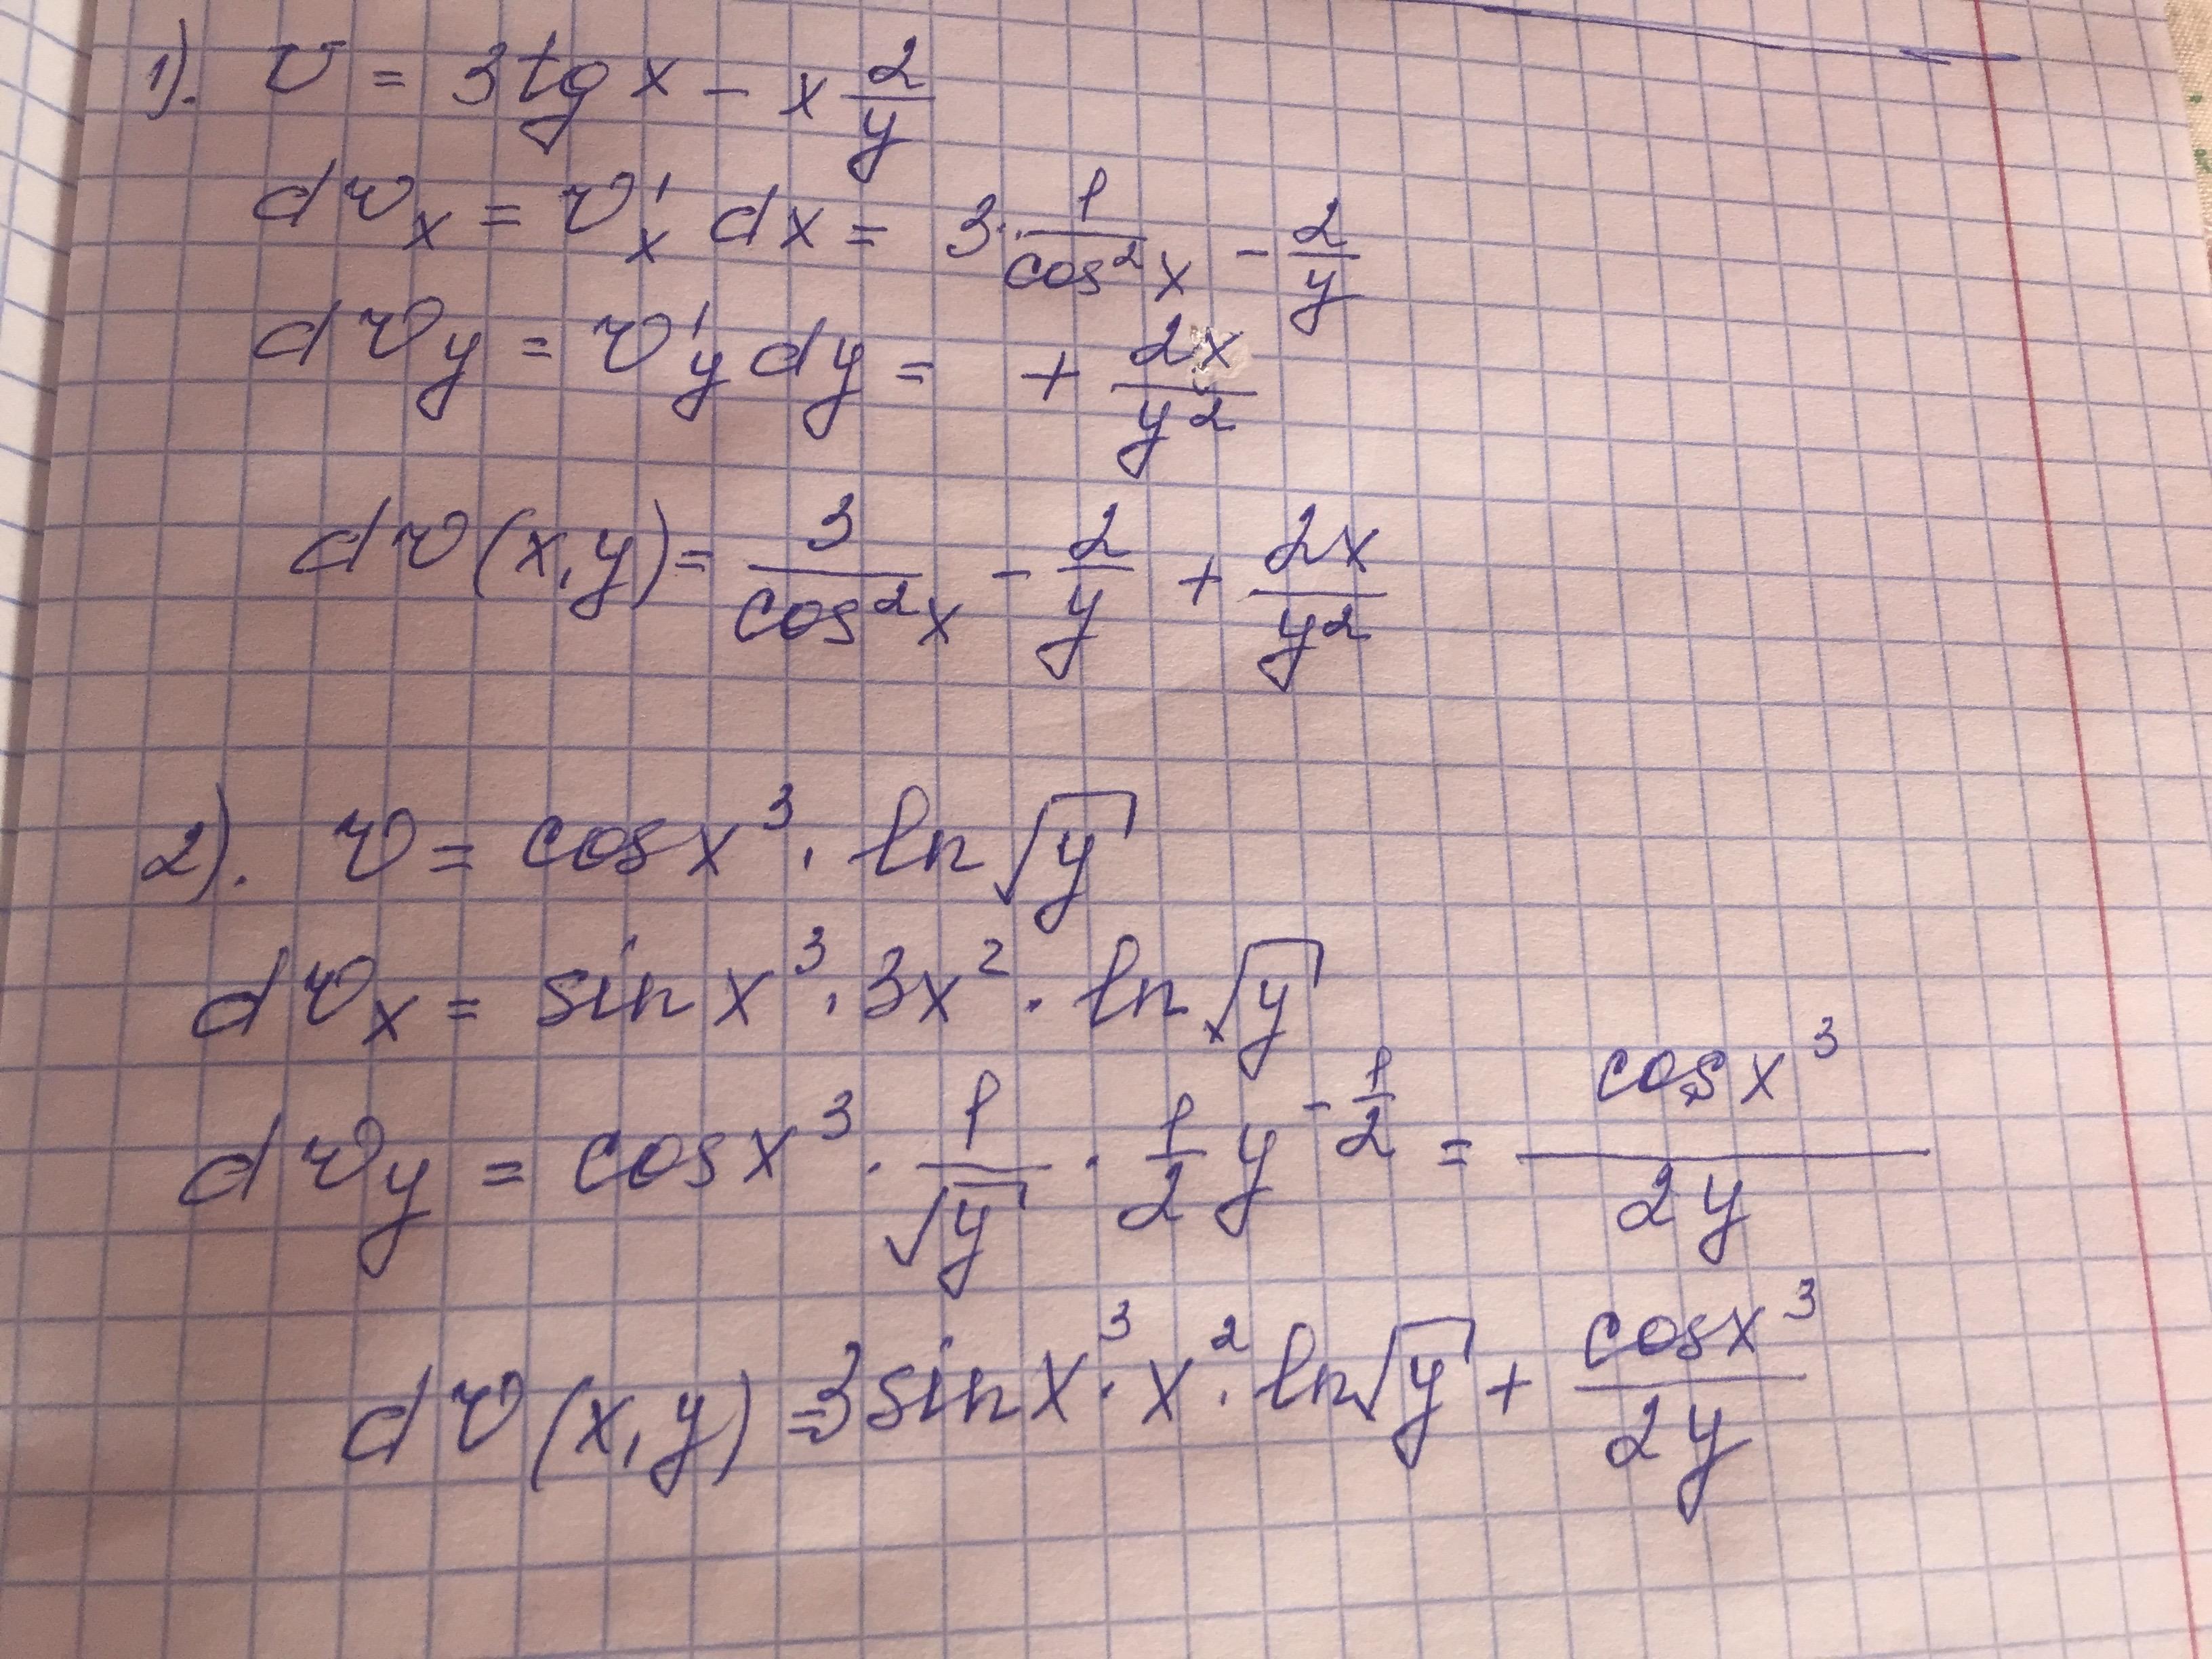 1). v = 3 tg x - x 2/y
dv_x = v'_x dx = 3 · 1/cos²x - 2/y
dv_y = v'_y dy = + 2x/y²
dv(x,y) = 3/cos²x - 2/y + 2x/y²
2). v = cos x³ · ln √y
dv_x = sin x³ · 3x² · ln √y
dv_y = cos x³ · 1/√y · 1/2 y^(-1/2) = cos x³/2y
dv(x,y) = 3 sin x³ · x² · ln √y + cos x³/2y